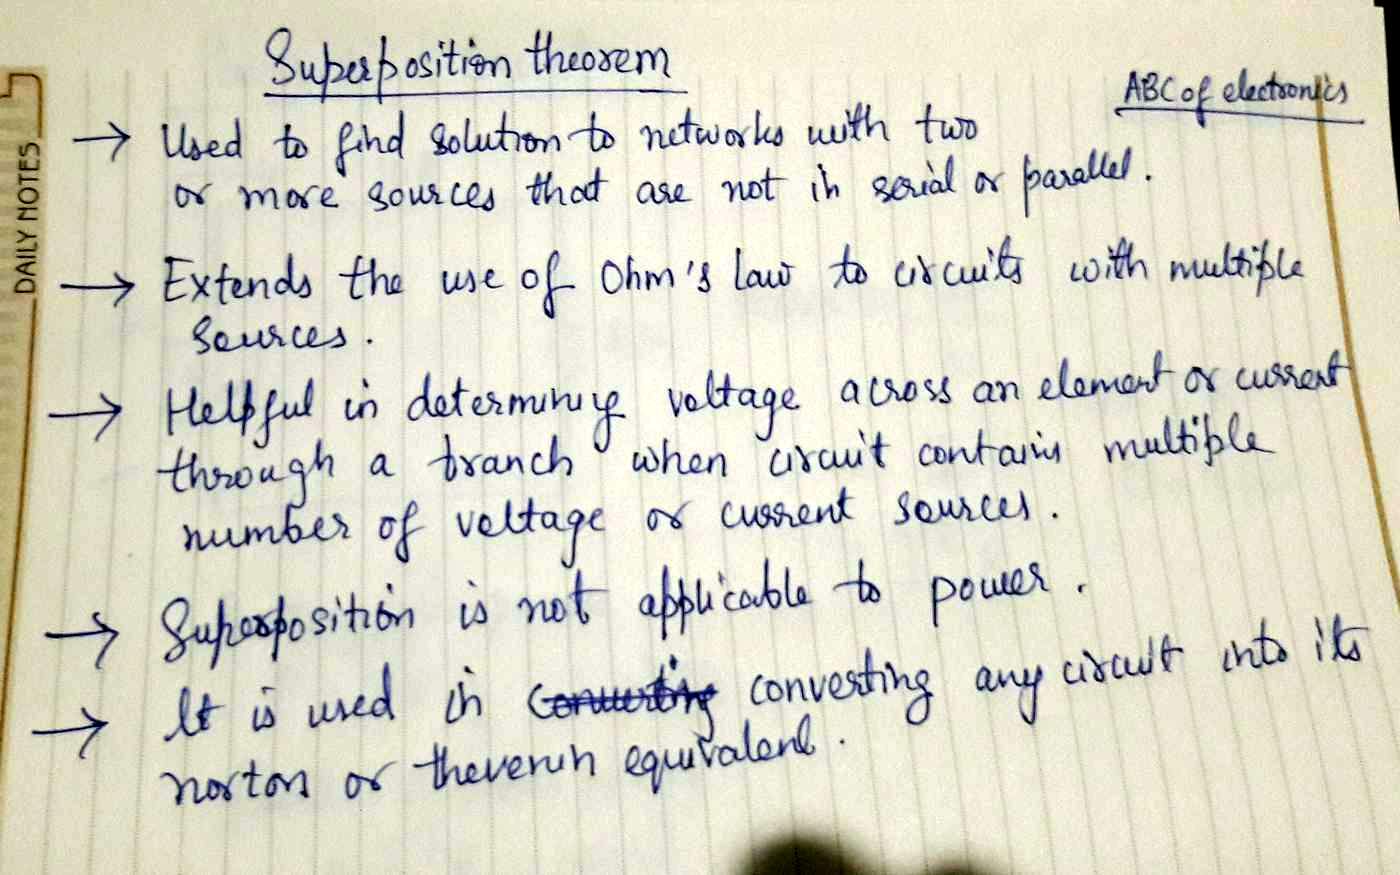 Superposition theorem
ABC of electronics
DAILY NOTES
→ Used to find solution to networks with two
or more sources that are not in serial or parallel.
→ Extends the use of Ohm's law to circuits with multiple
sources.
→ Helpful in determining voltage across an element or current
through a branch when circuit contains multiple
number of voltage or current sources.
→ Superposition is not applicable to power.
→ It is used in converting any circuit into its
norton or thevenin equivalent.